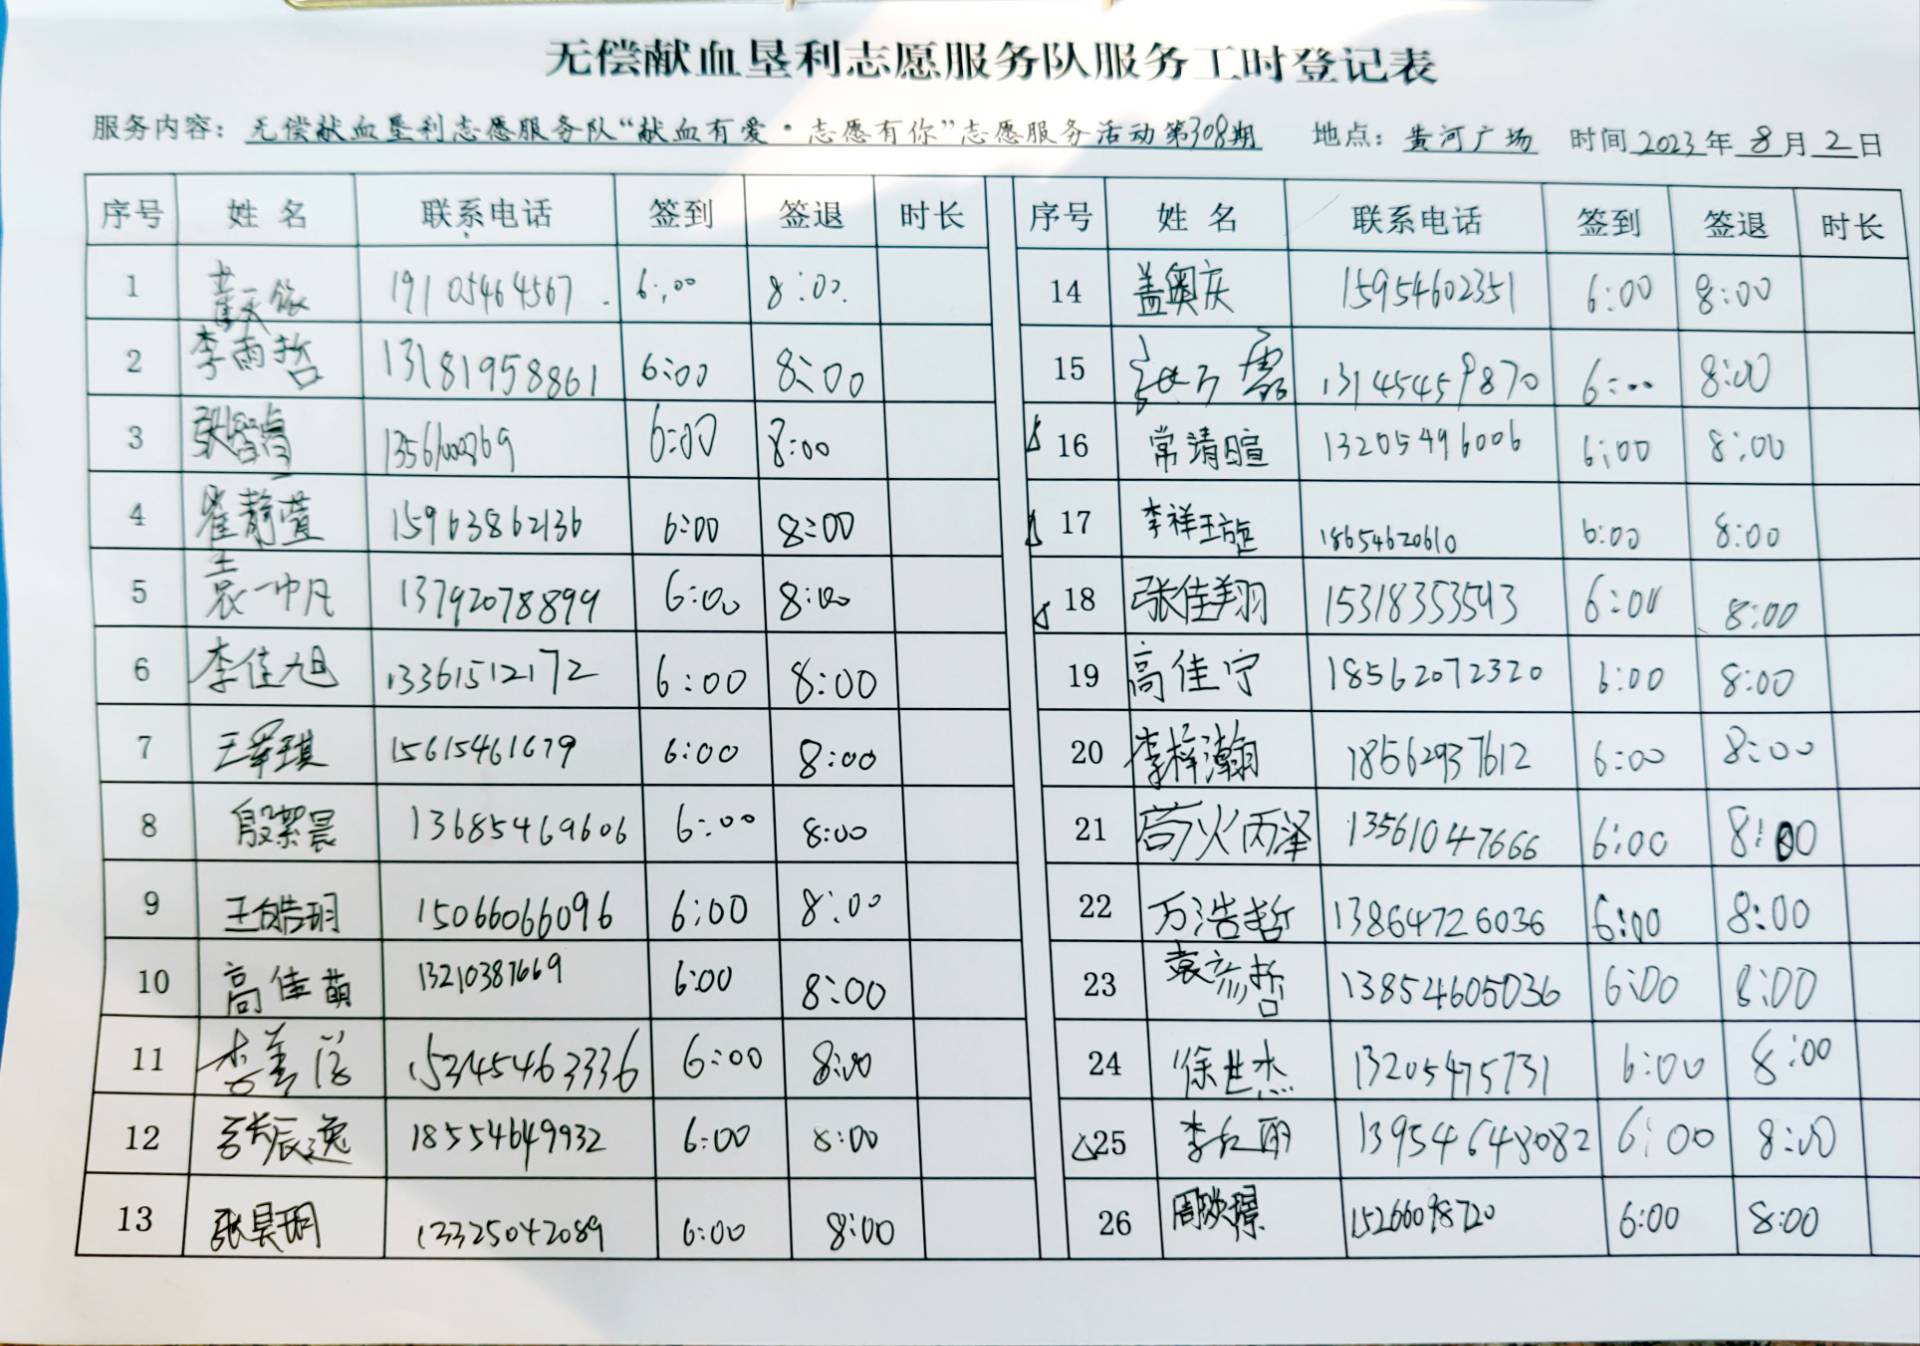 无偿献血垦利志愿服务队服务工时登记表
服务内容：无偿献血垦利志愿服务队“献血有爱·志愿有你”志愿服务活动第308期 地点：黄河广场 时间2023年8月2日
序号 姓名 联系电话 签到 签退 时长 序号 姓名 联系电话 签到 签退 时长
1 19105464567 6:00 8:00 14 盖奥庆 15954602351 6:00 8:00
2 李雨哲 13181958861 6:00 8:00 15 13145459870 6:00 8:00
3 6:00 8:00 16 常清暄 13205496006 6:00 8:00
4 崔静萱 15963862136 6:00 8:00 17 李祥 18654620610 6:00 8:00
5 13792078899 6:00 8:00 18 张佳翔 15318353593 6:00 8:00
6 李佳旭 13361512172 6:00 8:00 19 高佳宁 18562072320 6:00 8:00
7 王泽琪 15615461679 6:00 8:00 20 李梓瀚 18562937612 6:00 8:00
8 殷絮晨 13685469606 6:00 8:00 21 苟火丙泽 13561047666 6:00 8:00
9 王皓玥 15066066096 6:00 8:00 22 万浩哲 13864726036 6:00 8:00
10 高佳萌 13210387669 6:00 8:00 23 袁彦哲 13854605036 6:00 8:00
11 15345463336 6:00 8:00 24 徐世杰 13205475731 6:00 8:00
12 辰逸 18554649932 6:00 8:00 25 李红丽 13954648082 6:00 8:00
13 张昊玥 13325042089 6:00 8:00 26 周映璟 15266098720 6:00 8:00